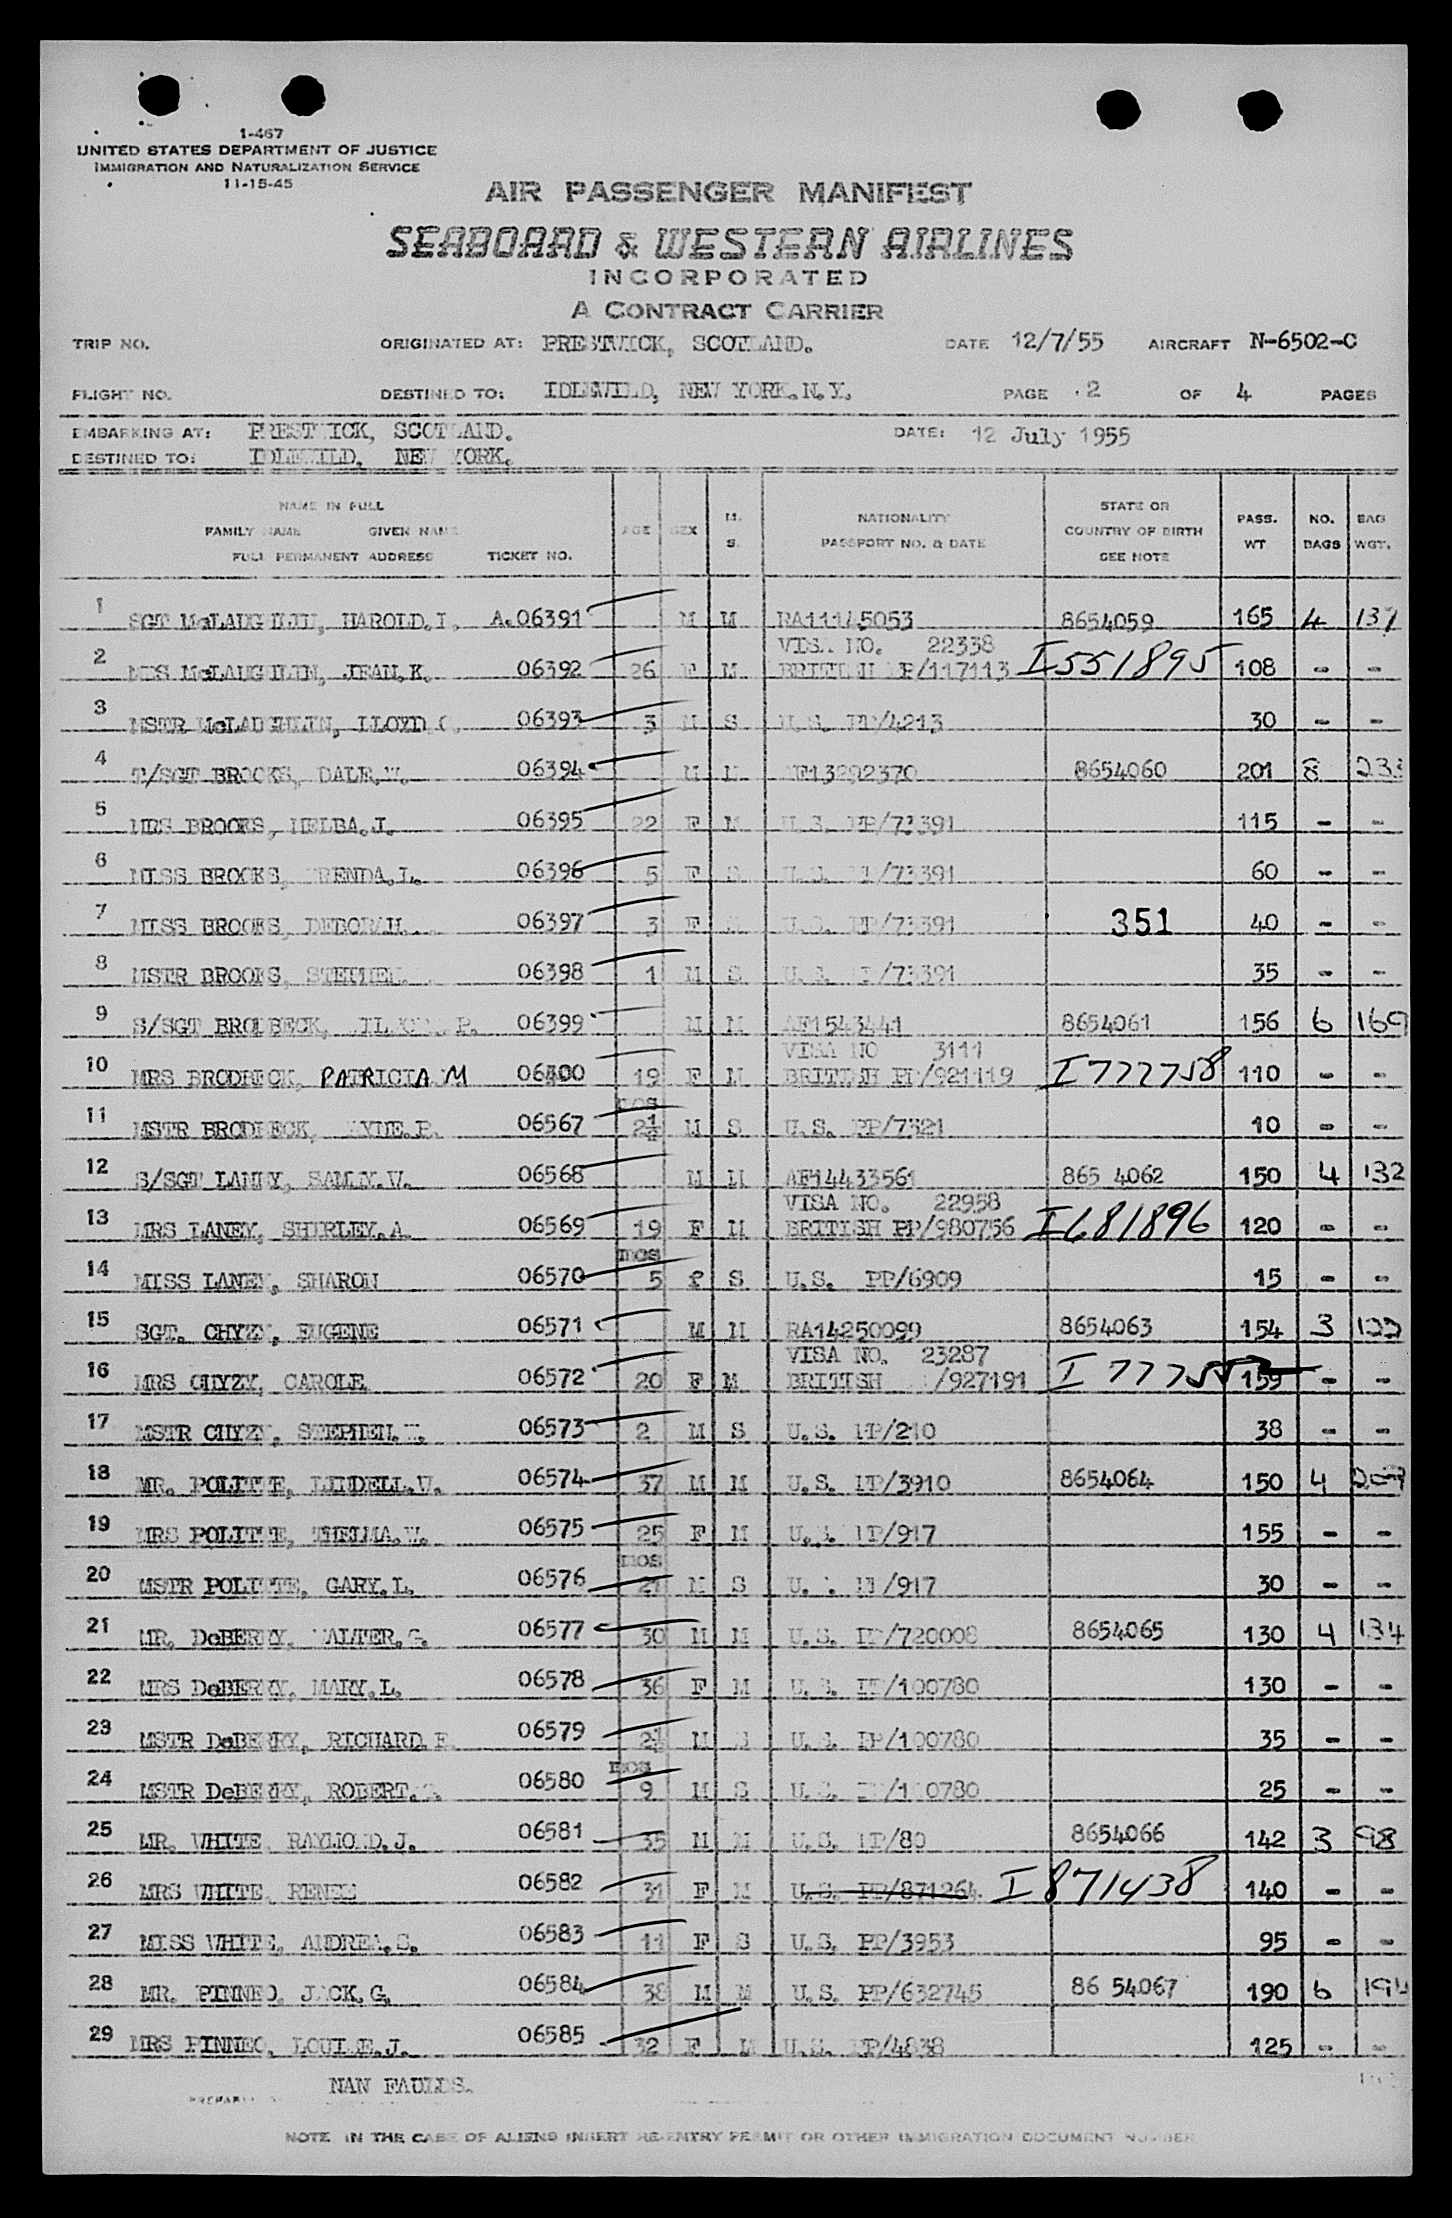 1-467
UNITED STATES DEPARTMENT OF JUSTICE
IMMIGRATION AND NATURALIZATION SERVICE
11-15-45
AIR PASSENGER MANIFEST
SEABOARD & WESTERN AIRLINES
INCORPORATED
A CONTRACT CARRIER
TRIP NO. ORIGINATED AT: PRESTWICK, SCOTLAND. DATE 12/7/55 AIRCRAFT N-6502-C
FLIGHT NO. DESTINED TO: IDLEWILD, NEW YORK.N.Y. PAGE 2 OF 4 PAGES
EMBARKING AT: PRESTWICK, SCOTLAND. DATE: 12 July 1955
DESTINED TO: IDLEWILD, NEW YORK.
NAME IN FULL
FAMILY NAME GIVEN NAME
FULL PERMANENT ADDRESS TICKET NO. AGE SEX M. S. NATIONALITY PASSPORT NO. & DATE STATE OR COUNTRY OF BIRTH SEE NOTE PASS. WT NO. BAGS BAG WGT.
1 SGT McLAUGHLIN, HAROLD.I. A.06391 M M RA11145053 8654059 165 4 137
VISA NO. 22338
2 MRS McLAUGHLIN, JEAN.K. 06392 26 F M BRITISH PP/117113 I551895 108 - -
3 MSTR McLAUGHLIN, LLOYD 06393 3 M S U.S. PP/4213 30 - -
4 T/SGT BROOKS, DALE.W. 06394 M M AF13292370 8654060 201 8
5 MRS BROOKS, MELBA.J. 06395 22 F M U.S. PP/73391 115 - -
6 MISS BROOKS, BRENDA.L. 06396 5 F S U.S. PP/73391 60 - -
7 MISS BROOKS, DEBORAH. 06397 3 F U.S. PP/73391 351 40 - -
8 MSTR BROOKS, STEPHEN. 06398 1 M S U.S. PP/73391 35 - -
9 S/SGT BRODBECK, P. 06399 M M AF1543441 8654061 156 6 169
VISA NO 3111
10 MRS BRODBECK, PATRICIA M 06400 19 F M BRITISH PP/921119 I777758 110 - -
MOS
11 MSTR BRODBECK, 06567 2½ M S U.S. PP/7321 10 - -
12 S/SGT LANEY, SAMMY.W. 06568 M M AF14433561 865 4062 150 4 132
VISA NO. 22958
13 MRS LANEY, SHIRLEY.A. 06569 19 F M BRITISH PP/980756 I681896 120 - -
MOS
14 MISS LANEY, SHARON 06570 5 F S U.S. PP/6909 15 - -
15 SGT. CHYZY, EUGENE 06571 M M RA14250099 8654063 154 3 122
VISA NO. 23287
16 MRS CHYZY, CAROLE 06572 20 F M BRITISH /927191 159 - -
17 MSTR CHYZY, STEPHEN. 06573 2 M S U.S. PP/210 38 - -
18 MR. POLITTE, LINDELL.W. 06574 37 M M U.S. PP/3910 8654064 150 4
19 MRS POLITTE, THELMA.W. 06575 25 F M U.S. PP/917 155 - -
MOS
20 MSTR POLITTE, GARY.L. 06576 21 M S U.S. PP/917 30 - -
21 MR. DeBERRY, WALTER.G. 06577 30 M M U.S. PP/720008 8654065 130 4 134
22 MRS DeBERRY, MARY.L. 06578 36 F M U.S. PP/100780 130 - -
23 MSTR DeBERRY, RICHARD. 06579 2½ M S U.S. PP/100780 35 - -
MOS
24 MSTR DeBERRY, ROBERT. 06580 9 M S U.S. PP/100780 25 - -
25 MR. WHITE, RAYMOND.J. 06581 35 M M U.S. PP/80 8654066 142 3 98
26 MRS WHITE, RENEE 06582 31 F M U.S. PP/871264 I871438 140 - -
27 MISS WHITE, ANDREA.S. 06583 11 F S U.S. PP/3953 95 - -
28 MR. PINNEO, JACK.G. 06584 38 M M U.S. PP/632745 86 54067 190 6
29 MRS PINNEO, LOUISE.J. 06585 32 F M U.S. PP/4838 125 - -
PREPARED BY NAN FAULDS.
NOTE IN THE CASE OF ALIENS INSERT RE-ENTRY PERMIT OR OTHER IMMIGRATION DOCUMENT NUMBER